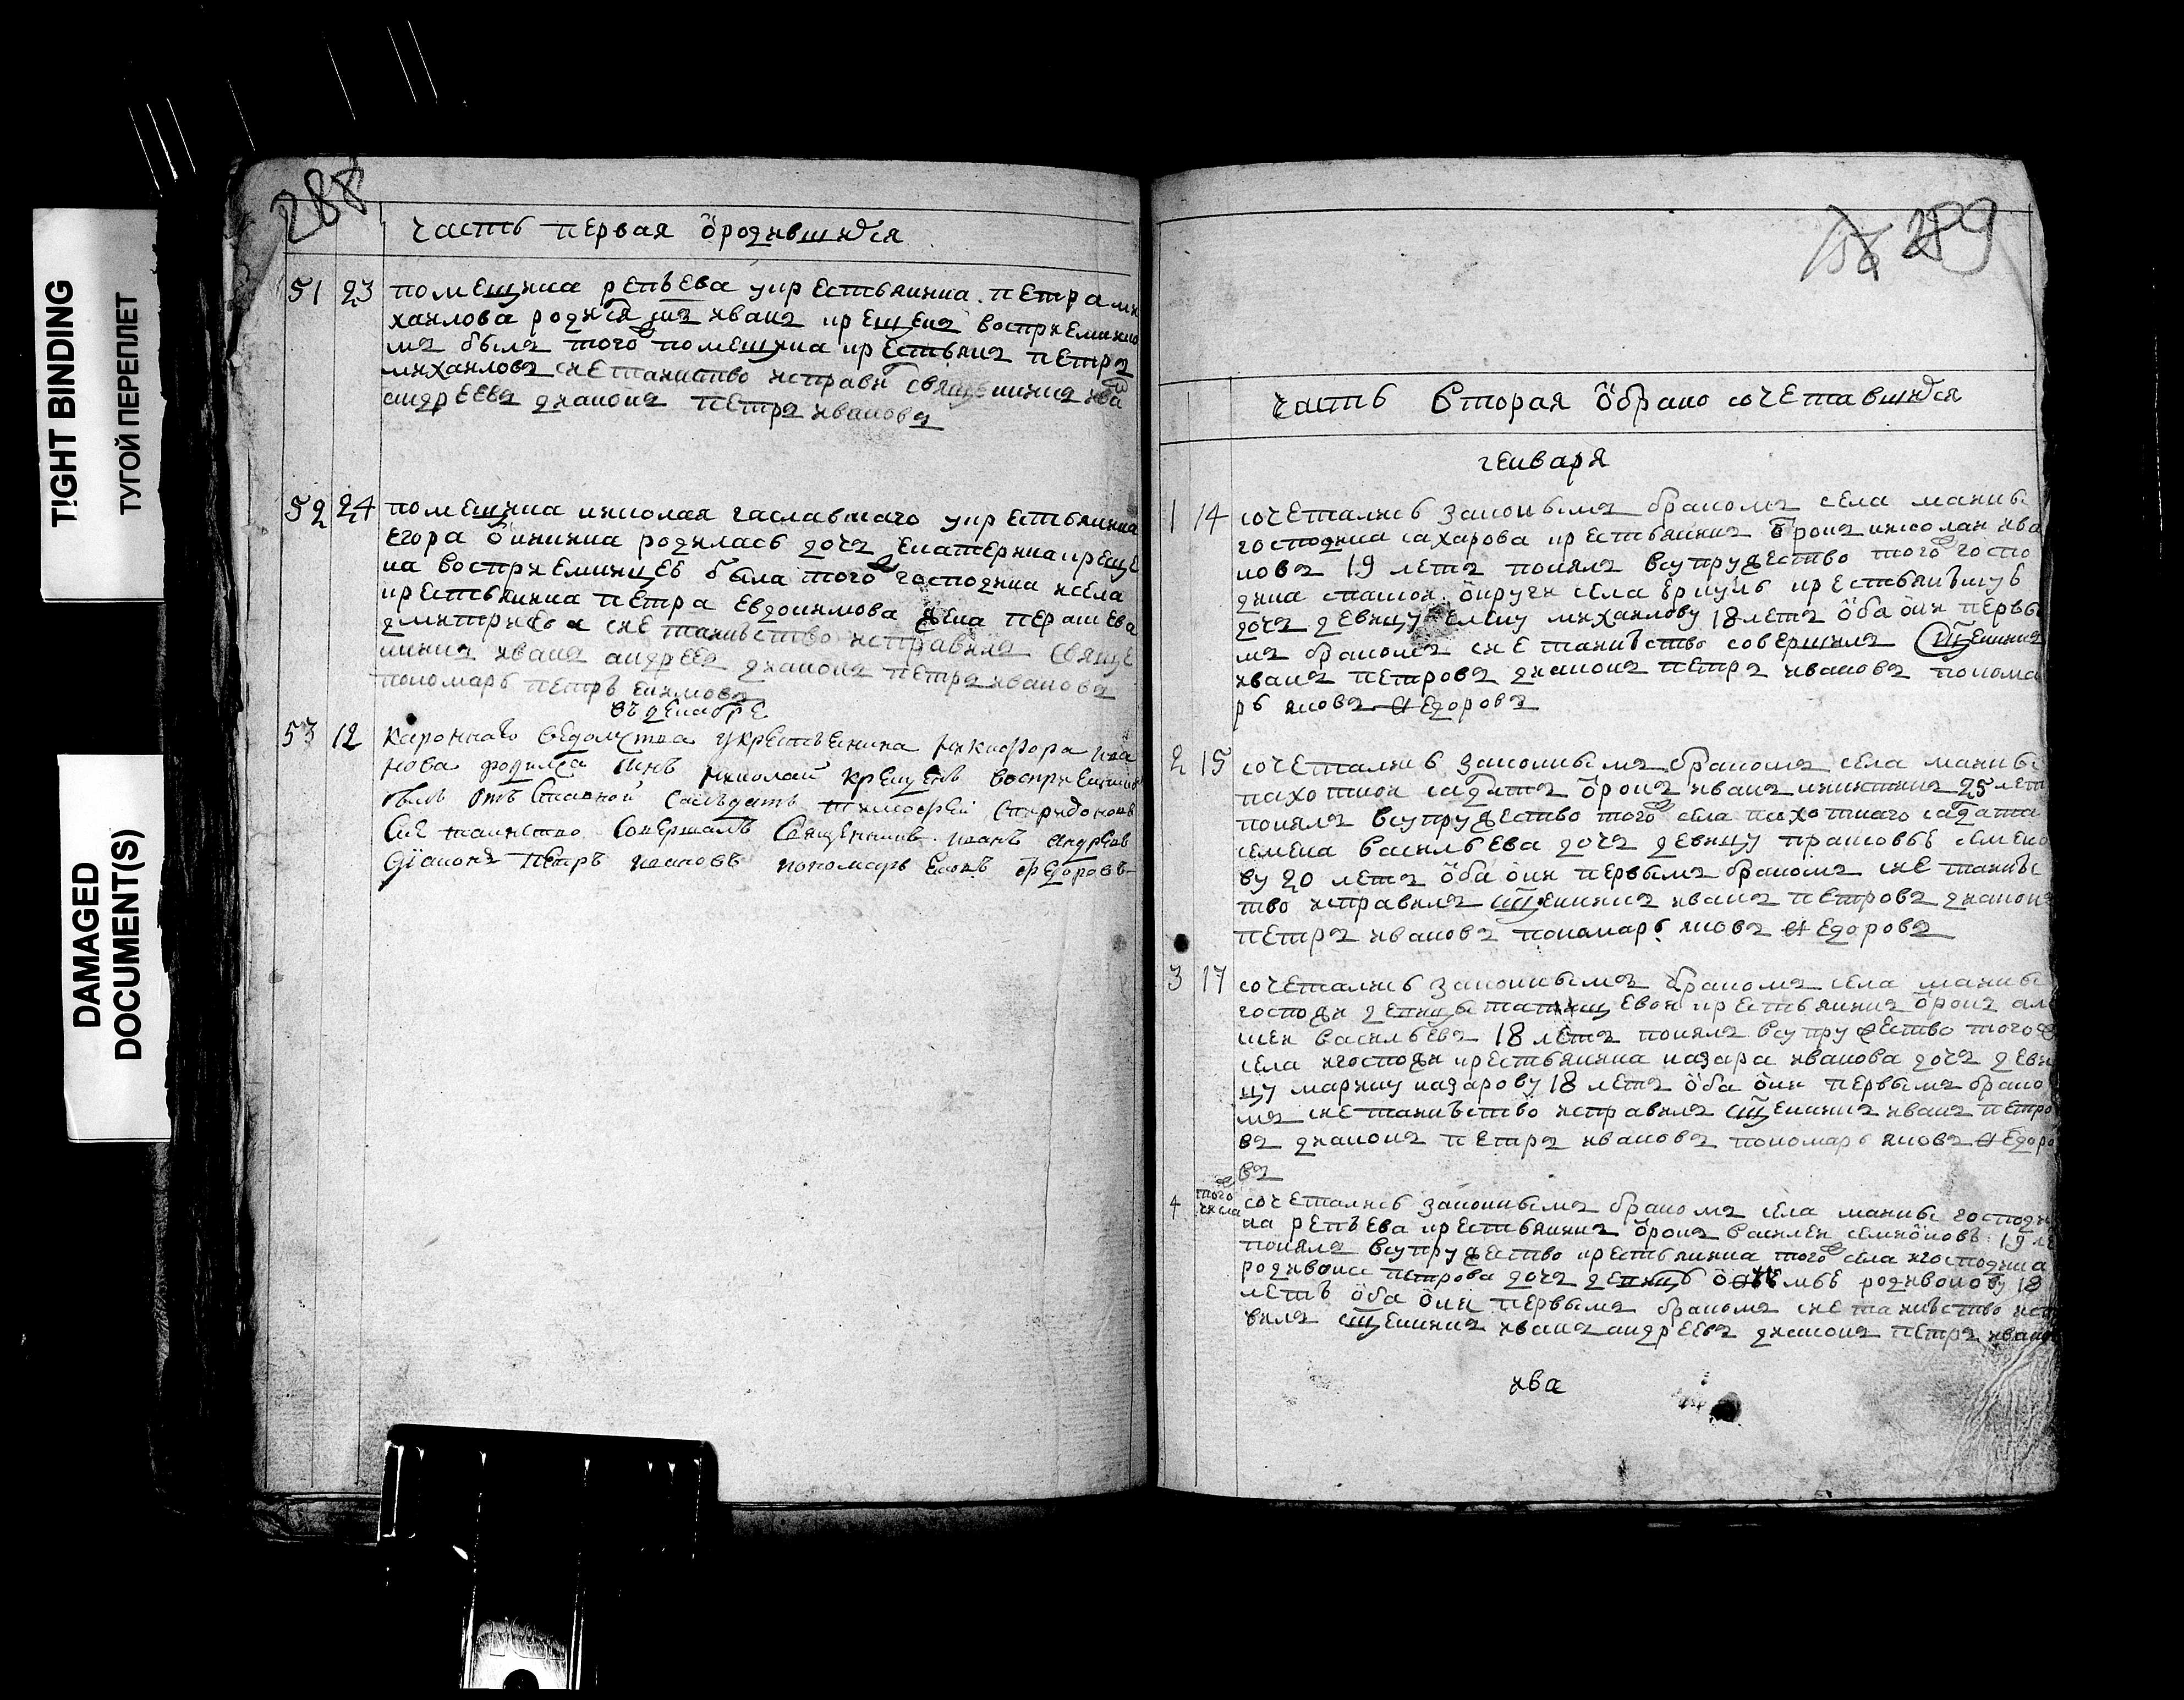 TIGHT BINDING
ТУГОЙ ПЕРЕПЛЕТ
DAMAGED
DOCUMENT(S)
288
часть первая ѡродившихся
51 23 помещика репьева укрестьянина петра ми
хаилова родился сынъ иванъ крещенъ восприемнико
мъ былъ тогоже помещика крестьянинъ петръ
михаиловъ сие таинство исправи священникъ иванъ
андреевъ диаконъ петръ ивановъ
52 24 помещика николая укрестьянина
егора родилась дочь екатерина креще
на восприемницею была тогоже господина исела
крестьянина петра евдокимова жена
дмитриева сие таинъство исправилъ свяще
нникъ иванъ андреевъ диаконъ петръ ивановъ
пономарь петръ
въ декабре
53 12 ведомства укрестьенина никифора ива
нова родился сынъ николай крещенъ восприемником
былъ отставной салъдатъ тимофей спиридоновъ
сие таинство совершалъ священникъ иванъ андреевъ
дїаконъ петръ ивановъ пономарь яковъ федоровъ
289
часть вторая ѡбрако сочетавшихся
генваря
1 14 сочетались законнымъ бракомъ села
господина сахарова крестьянинъ ѡтрокъ николаи ива
новъ 19 летъ понялъ всупружество тогоже госпо
дина округи села крестьянина
дочь девицу елену михаилову 18 летъ ѡба ѡни первы
мъ бракомъ сие таинъство совершилъ сщенникъ
иванъ петровъ диаконъ петръ ивановъ понома
рь яковъ ѳедоровъ
2 15 сочетались законнымъ бракомъ села
пахотнои садатъ ѡтрокъ иванъ никитинъ 25 летъ
понялъ всупружество тогоже села пахотнаго садата
семена васильева дочь девицу прасковье семено
ву 20 летъ ѡба ѡни первымъ бракомъ сие таинъс
тво исправилъ сщенникъ иванъ петровъ диаконъ
петръ ивановъ пономарь яковъ ѳедоровъ
3 17 сочетались законнымъ бракомъ села
госпожи девицы татищевои крестьянинъ ѡтрокъ але
ксеи васильевъ 18 летъ понялъ всупружество тогоже
села игоспожи крестьянина назара иванова дочь деви
цу марину назарову 18 летъ ѡба ѡни первымъ брако
мъ сие таинъство исправилъ сщенникъ иванъ петро
въ диаконъ петръ ивановъ пономарь яковъ ѳедоро
въ
4 тогоже числа сочетались законнымъ бракомъ села господи
на репьева крестьянинъ ѡтрокъ василеи семиѡновъ 19 ле
понялъ всупружество крестьянина тогоже села игосподина
родивона петрова дочь девицу родивонову 18
летъ ѡба ѡни первымъ бракомъ сие таинъство испра
вилъ сщенникъ иванъ андреевъ диаконъ петръ ивано
ива